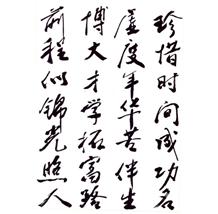 珍惜时间成功名
虚度年华苦伴生
博大才学拓富路
前程似锦光照人